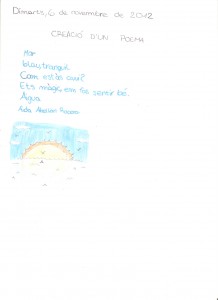 Dimarts, 6 de novembre de 2012
CREACIÓ D'UN POEMA
Mar
blau, tranquil.
Com estàs avui?
Ets màgic, em fas sentir bé.
Aigua.